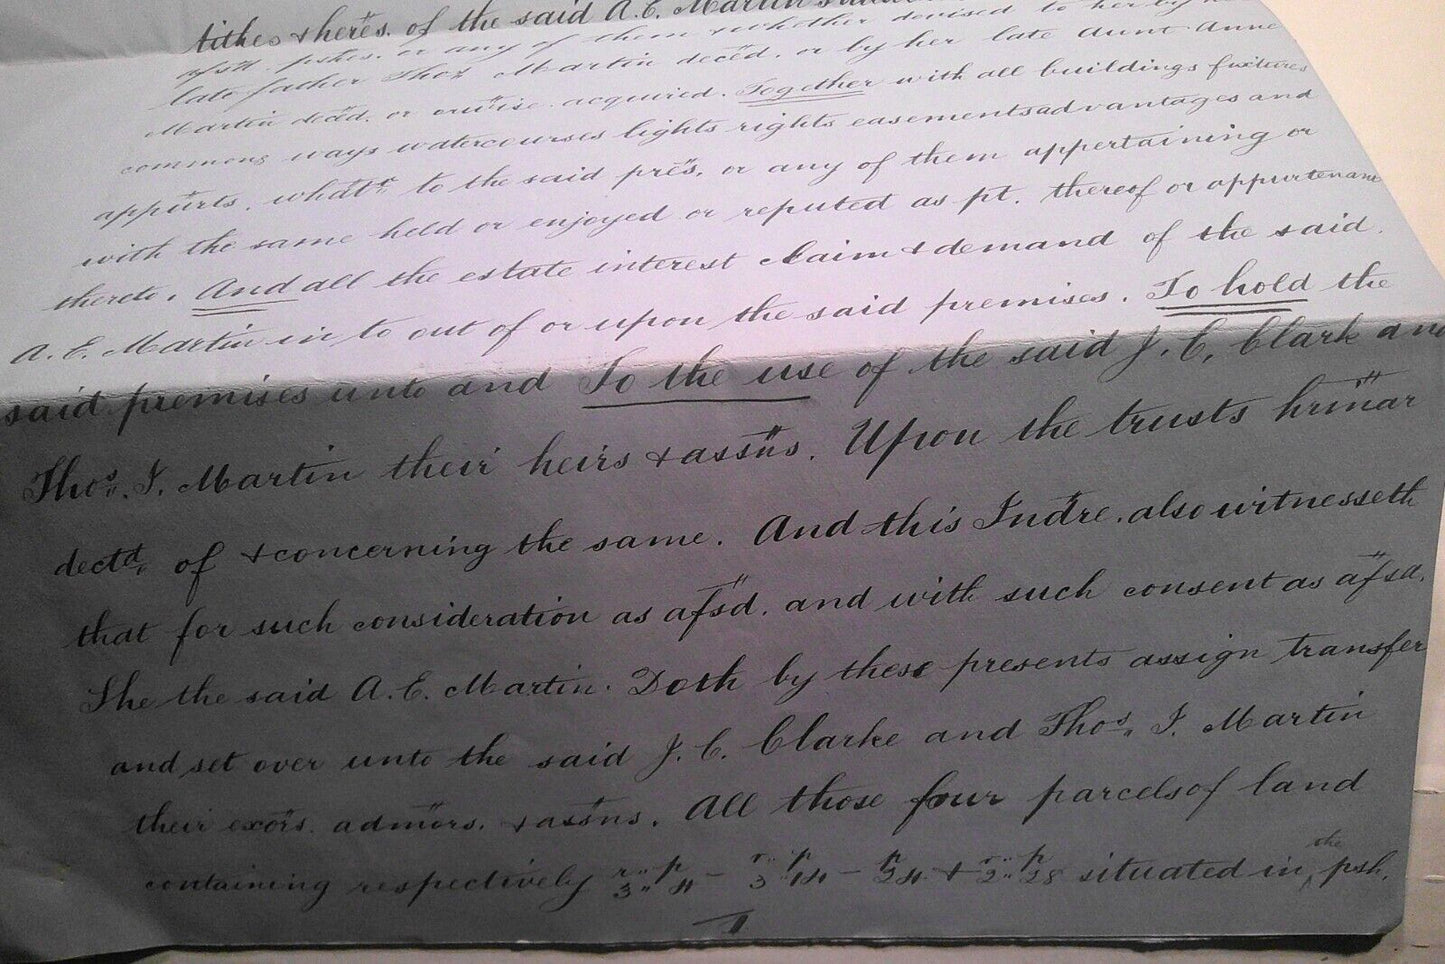 tithes & heres. of the said A.E. Martin
afsd. pshes. or any of them & whether devised to her by
late father Thos. Martin decēd. or by her late aunt Anne
Martin decēd. or otwise acquired. Together with all buildings fixtures
commons ways watercourses lights rights easements advantages and
appurts. whatr. to the said pres. or any of them appertaining or
with the same held or enjoyed or reputed as pt. thereof or appurtenant
thereto. And all the estate interest claim & demand of the said
A.E. Martin in to out of or upon the said premises. To hold the
said premises unto and To the use of the said J.C. Clark and
Thos. J. Martin their heirs & assns. Upon the trusts hrinar
dectd. of & concerning the same. And this Indre. also witnesseth
that for such consideration as afsd. and with such consent as afsd.
She the said A.E. Martin. Doth by these presents assign transfer
and set over unto the said J.C. Clarke and Thos. J. Martin
their exors. admors. & assns. All those four parcels of land
containing respectively situated in the psh.